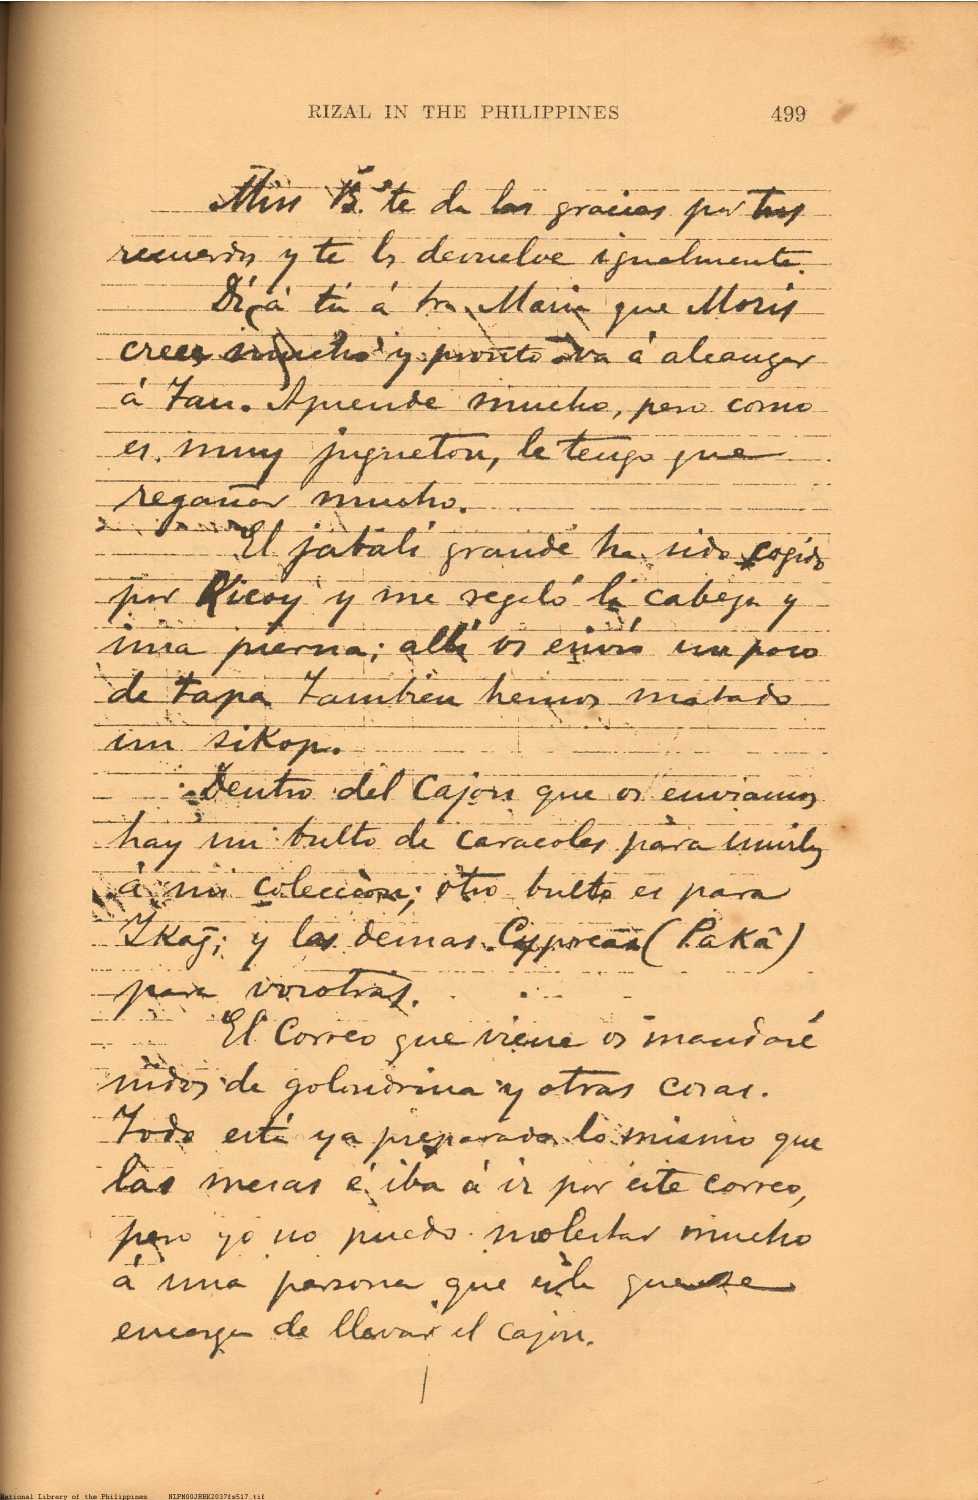 RIZAL IN THE PHILIPPINES 499
Miss B. te da las gracias por tus
recuerdos y te ls devuelve igualmente.
Dí á tia á Maria que Moris
crece mucho y pronto va á alcanzar
á Tan. Aprende mucho, pero como
es muy jugueton, le tengo que
regañar mucho.
El jabalí grande ha sido cogido
por y me regaló la cabeza y
una pierna; allí os envío un poco
de tapa Tambien hemos matado
un sikop.
Dentro del Cajon que os enviamos
hay un bulto de caracoles para unirlos
á mi coleccion; otro bulto es para
Ikag; y las demas Cypreas (Pakâ)
para vosotras.
El Correo que viene os mandaré
nidos de golondrina y otras cosas.
Todo está ya preparado lo mismo que
las mesas é iba á ir por este correo,
pero yo no puedo molestar mucho
á una persona que se
encarga de llevar el cajon.
National Library of the Philippines NLPN00JRHK2037fs517.tif